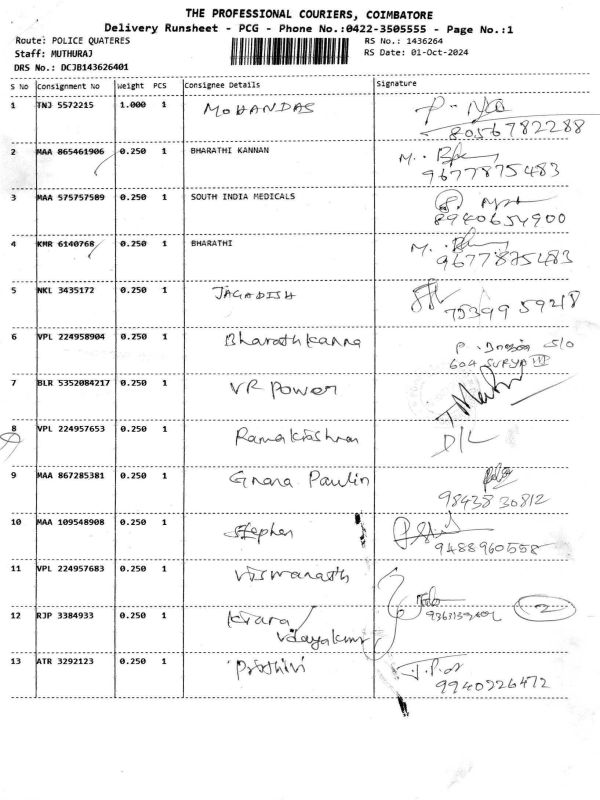 THE PROFESSIONAL COURIERS, COIMBATORE
Delivery Runsheet - PCG - Phone No.:0422-3505555 - Page No.:1
Route: POLICE QUATERES RS No.: 1436264
Staff: MUTHURAJ RS Date: 01-Oct-2024
DRS No.: DCJB143626401
S No Consignment No Weight PCS Consignee Details Signature
1 TNJ 5572215 1.000 1 MOHANDAS
8056782288
2 MAA 865461906 0.250 1 BHARATHI KANNAN M.
9677875483
3 MAA 575757589 0.250 1 SOUTH INDIA MEDICALS
8940654900
4 KMR 6140768 0.250 1 BHARATHI M.
9677875483
5 NKL 3435172 0.250 1 JAGADISH
75399 59218
6 VPL 224958904 0.250 1 Bharathkanna P. S/O
604 SURYA III
7 BLR 5352084217 0.250 1 VR Power
8 VPL 224957653 0.250 1 Ramakrishnan D/L
9 MAA 867285381 0.250 1 Gnana Paulin
98438 30812
10 MAA 109548908 0.250 1 Stephen
9488960558
11 VPL 224957683 0.250 1 Viswanath
12 RJP 3384933 0.250 1 Kiara/ 2
Vijayakumar
13 ATR 3292123 0.250 1 Prithivi
9940226472